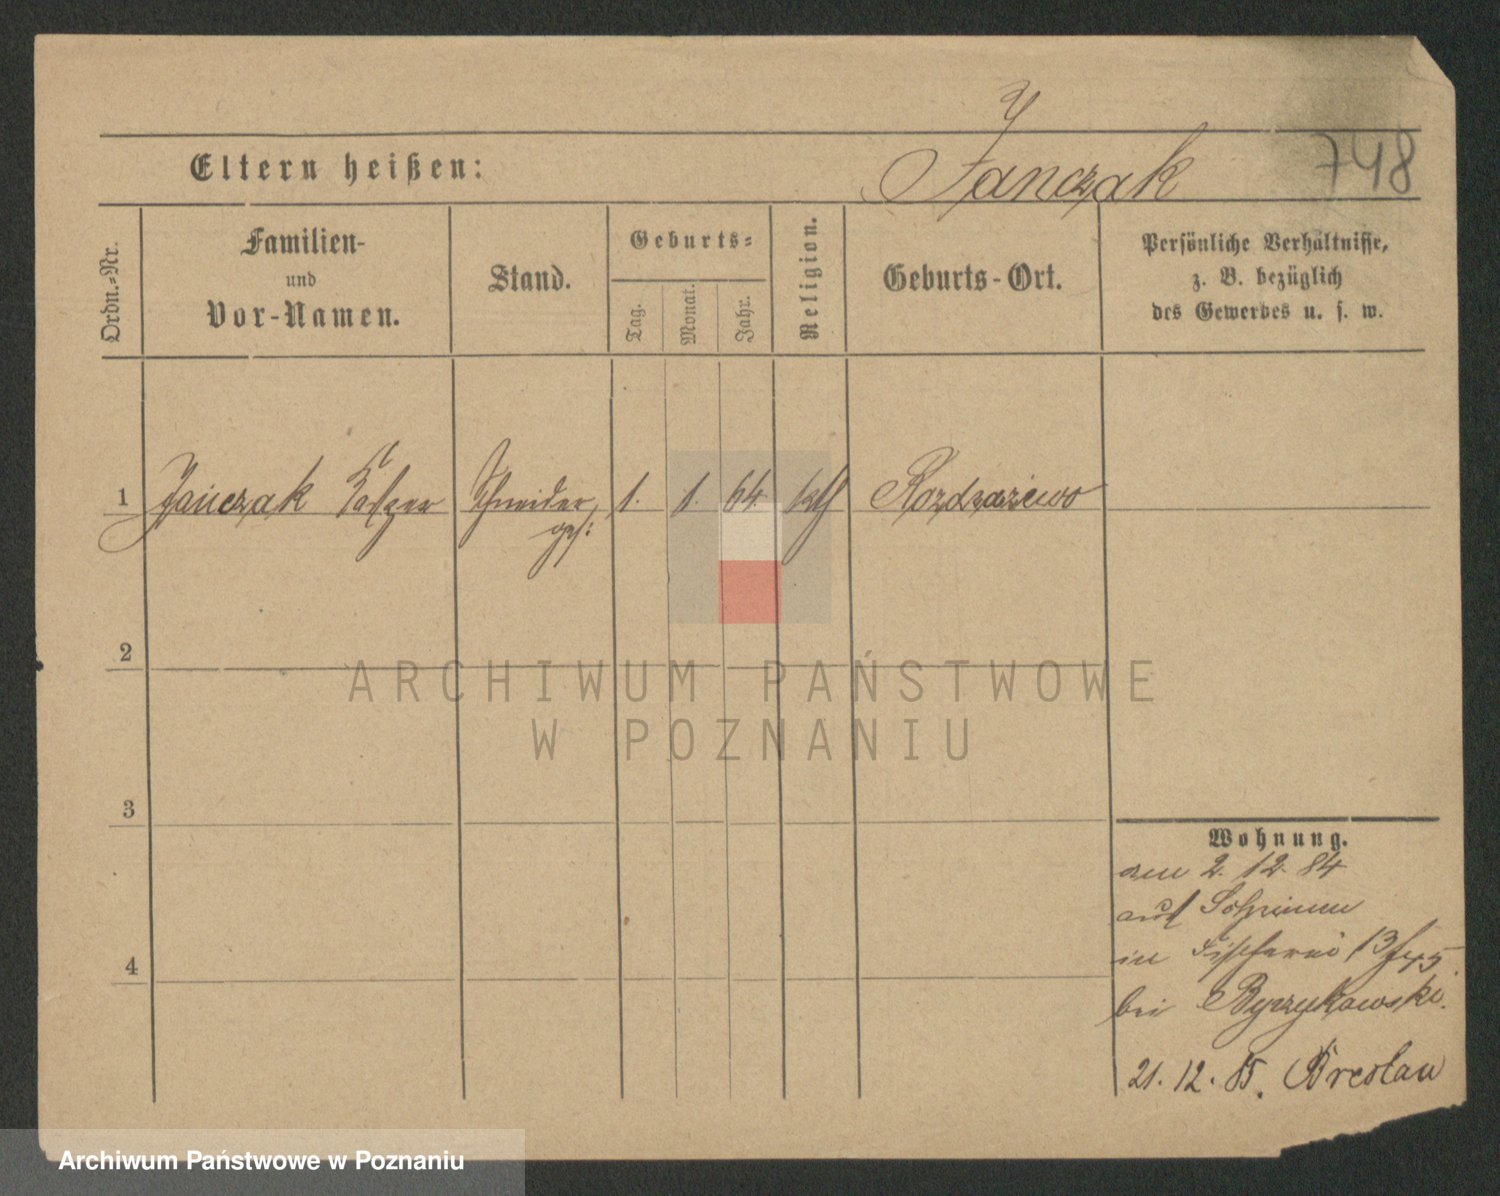 Y
Janczak
748
Eltern heißen:
Ordn.-Nr.
Familien-
und
Vor-Namen.
Stand.
Geburts-
Tag.
Monat.
Jahr.
Religion.
Geburts-Ort.
Persönliche Verhältnisse,
z. B. bezüglich
des Gewerbes u. s. w.
1 Janczak Schneider 1. 1. 64. kth Rozdrazewo
2
3
4
Wohnung.
am 2. 12. 84
aus Schrimm
in Fischerei 13
bei Byrzykowski.
21. 12. 85. Breslau
ARCHIWUM PAŃSTWOWE
W POZNANIU
Archiwum Państwowe w Poznaniu